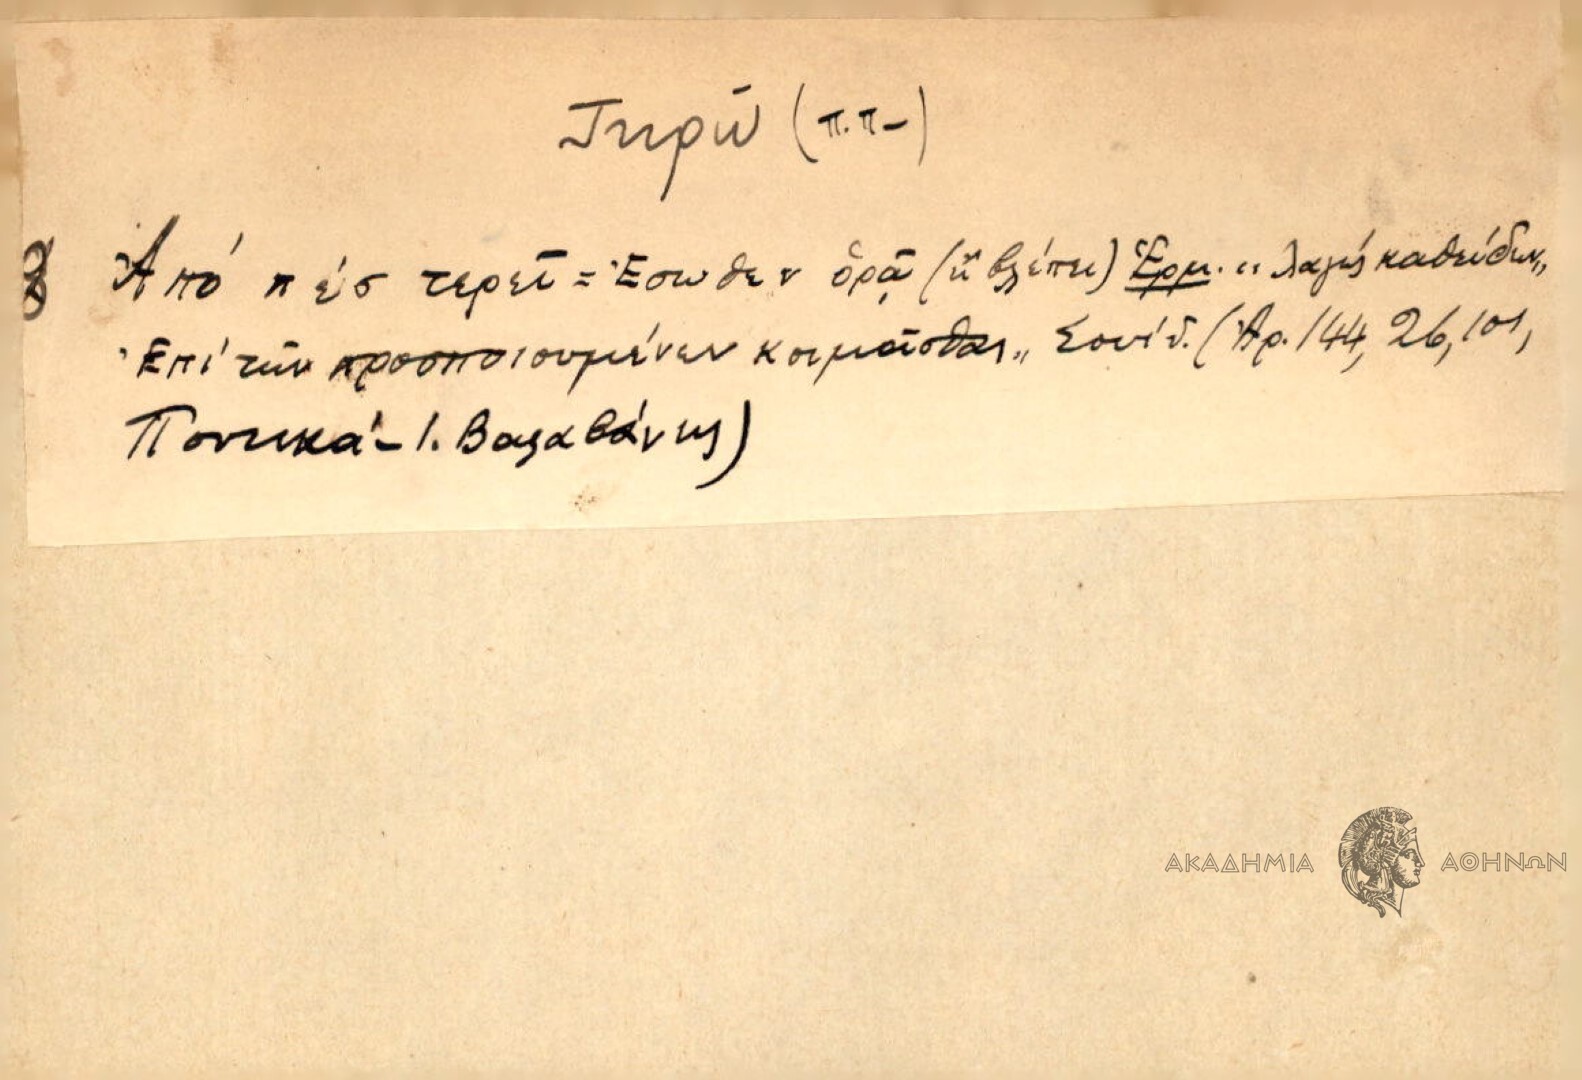 Τηρῶ (π.π–)
Ἀπό πέσ τερεῖ = Ἔσωθεν ὁρᾷ (ἢ βλέπει) Ἑρμ. „ λαγώς καθεύδων„
Ἐπί τῶν προσποιουμένων κοιμᾶσθαι„ Σουΐδ. (Ἀρ. 144, 26, 101,
Ποντικά – Ι. Βαλαβάνης)
ΑΚΑΔΗΜΙΑ ΑΘΗΝΩΝ